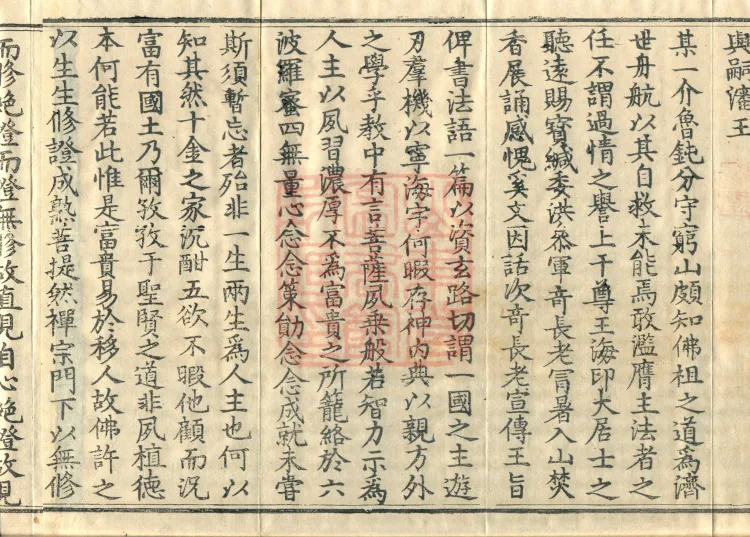 與嗣瀋王
某一介魯鈍分守窮山頗知佛祖之道爲濟
世舟航以其自救未能焉敢濫膺主法者之
任不謂過情之譽上干尊王海印大居士之
聽遠賜寶緘委洪叅軍竒長老冐暑入山焚
香展誦感愧奚文因話次竒長老宣傳王旨
俾書法語一篇以資玄路切謂一國之主遊
刃羣機以寧海宇何暇存神内典以親方外
之學乎教中有言菩薩夙乗般若智力示爲
人主以夙習濃厚不爲富貴之所籠絡於六
波羅蜜四無量心念念策勵念念成就未甞
斯須暫忘者殆非一生兩生爲人主也何以
知其然十金之家沉酣五欲不暇他顧而况
富有國土乃爾孜孜于聖賢之道非夙植德
本何能若此惟是富貴易於移人故佛許之
以生生修證成熟菩提然禪宗門下以無修
而修絶證而證無修故直見自心絶證故見